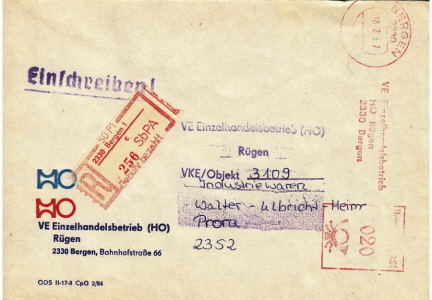 BERGEN
2330
Einschreiben!
VE Einzelhandelsbetrieb
HO Rügen
2330 Bergen
50 Pf
2330 Bergen 1
c
256 SbPA
Gebühr bezahlt
R
VE Einzelhandelsbetrieb (HO)
Rügen
VKE/Objekt 3109
Industriewaren
Walter-Ulbricht-Heim
Prora
2352
HO
HO
VE Einzelhandelsbetrieb (HO)
Rügen
2330 Bergen, Bahnhofstraße 66
020
ODS II-17-8 CpG 2/84